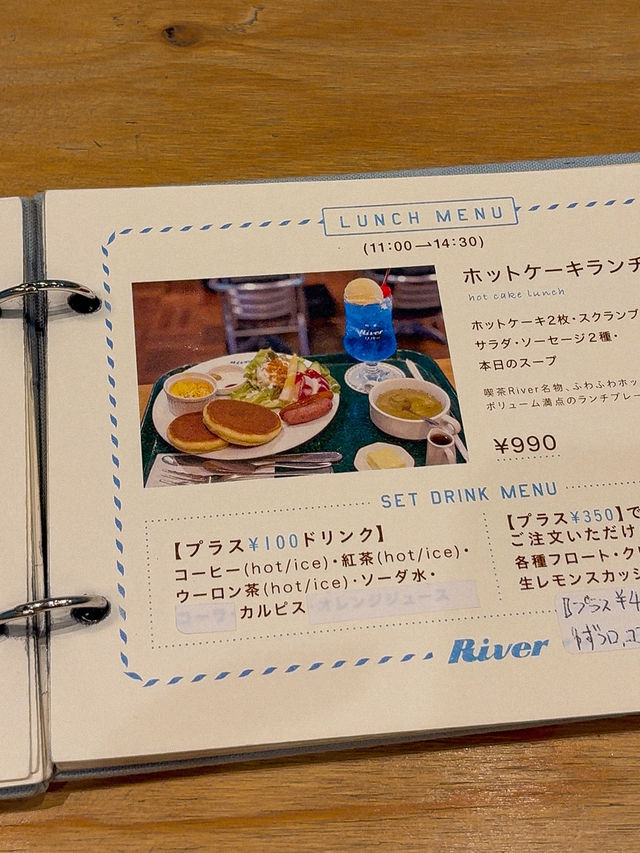 LUNCH MENU
(11:00→14:30)
River
ホットケーキランチ
hot cake lunch
ホットケーキ2枚・スクランブ
サラダ・ソーセージ2種・
本日のスープ
喫茶River名物、ふわふわホッ
ボリューム満点のランチプレー
¥990
SET DRINK MENU
【プラス¥100ドリンク】
コーヒー(hot/ice)・紅茶(hot/ice)・
ウーロン茶(hot/ice)・ソーダ水・
コーラ・カルピス オレンジジュース
【プラス¥350】で
ご注文いただけ
各種フロート・クリ
生レモンスカッシ
【プラス ¥4
River